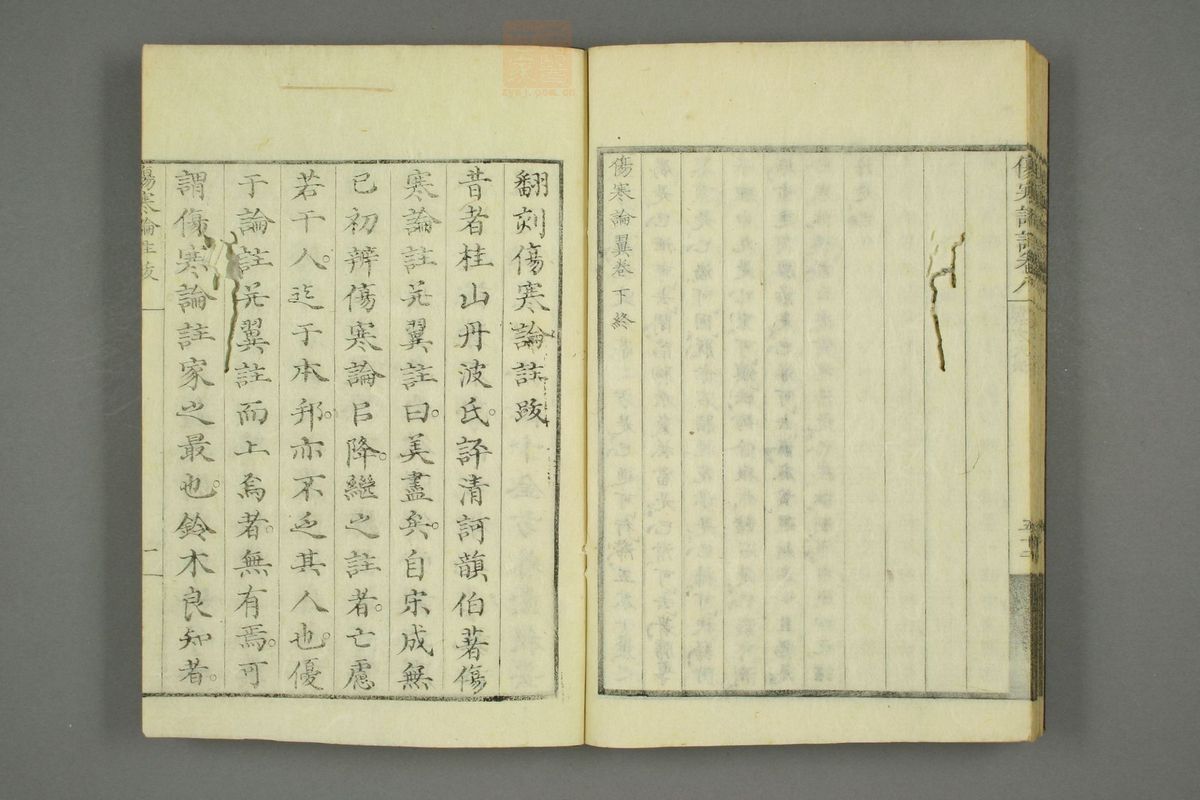 傷寒論註卷八
五十二
傷寒論翼卷下終
翻刻傷寒論註跋
昔者桂山丹波氏。評清訶韻伯著傷
寒論註并翼註曰。美盡矣。自宋成無
已初辨傷寒論㠯降。繼之註者。亡慮
若干人。迄于本邦。亦不乏其人也。優
于論註并翼註而上焉者。無有焉。可
謂傷寒論註家之最也。鈴木良知者。
傷寒論註跋
一
zysj.com.cn